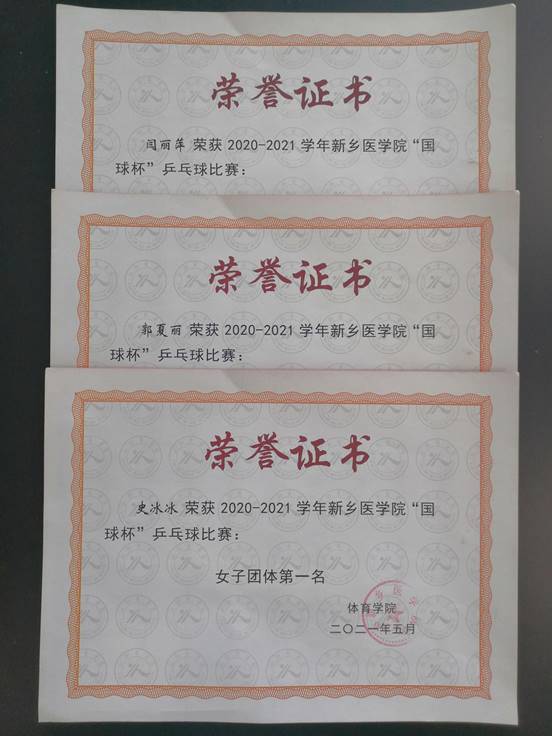 荣誉证书
闫丽萍 荣获 2020-2021 学年新乡医学院“国
球杯”乒乓球比赛：
荣誉证书
郭夏丽 荣获 2020-2021 学年新乡医学院“国
球杯”乒乓球比赛：
荣誉证书
史冰冰 荣获 2020-2021 学年新乡医学院“国
球杯”乒乓球比赛：
女子团体第一名
体育学院
二〇二一年五月